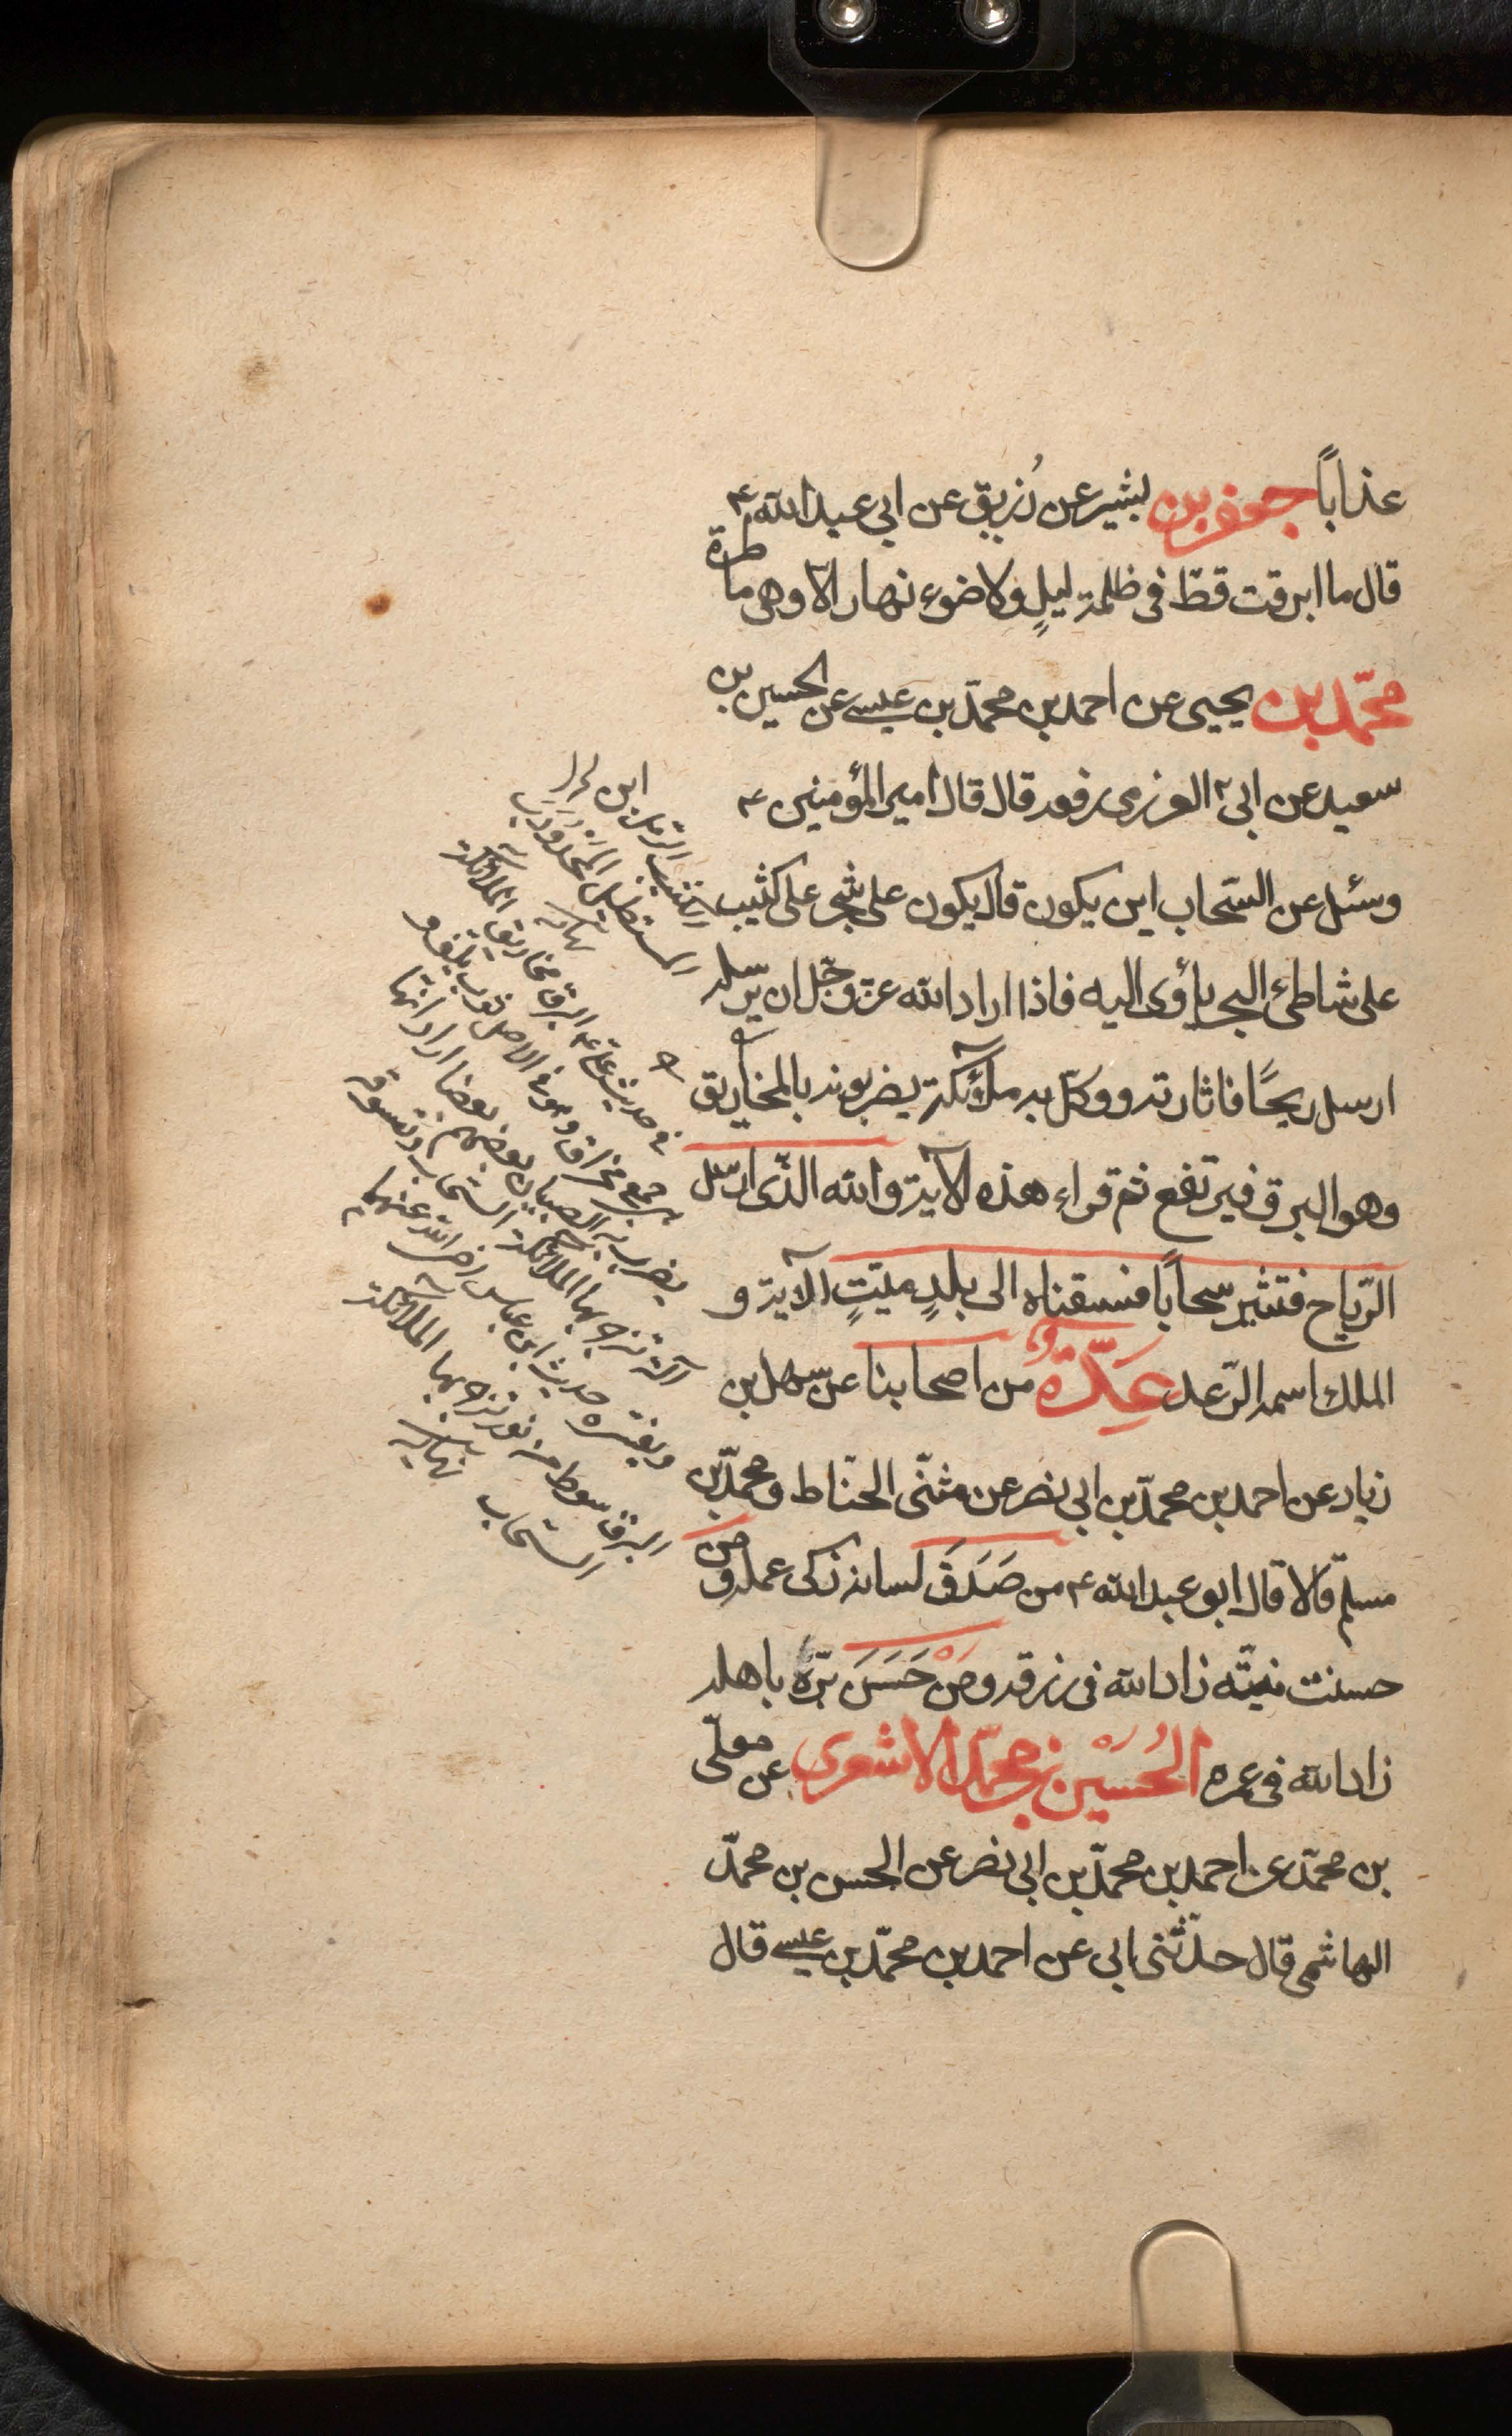 عذاباً جعفر بن بشير عن رُزيق عن ابي عبد الله ع
قال ما ابرقت قطّ فى ظلمة ليلٍ ولا ضوء نهار الّا وهى ماطرة
محمّد بن يحيى عن احمد بن محمّد بن عيسى عن الحسين بن
سعيد عن ابن العرزمى رفعه قال قال امير المؤمنين ع
وسئل عن السّحاب اين يكون قال يكون على شجر على كثيب
على شاطئ البحر يأوى اليه فاذا اراد الله عزّ وجّل ان يرسله
ارسل ريحًا فاثارته ووكّل به ملآئكة يضربونه بالمخاريق
وهو البرق فيرتفع ثم قراء هذه الآية والله الذّى ارسل
الرّياح فتثير سحاباً فسقناه الى بلدٍ ميّتٍ الآية و
الملك اسمه الرّعد عِدّةٌ من اصحابنا عن سهل بن
زياد عن احمد بن محمّد بن ابى نصر عن مثنّى الحنّاط ومحمّد بن
مسلم قالا قال ابو عبد الله ع من صَدَقَ لسانه زكى عمله ومن
حسنت نيّته زاد الله فى رزقه ومن حَسَنَ برّه باهله
زاد الله فى عمره الحُسَيْن بن محمّد الاشعرى عن معلّى
بن محمّد عن احمد بن محمّد بن ابى نصر عن الحسن بن محمّد
الهاشمى قال حدّثنى ابى عن احمد بن محمّد بن عيسى قال
الكثيب الرمل
المستطيل المُحْدَوْدَب
نهاية
فى حديث على ع البرق مخاريق الملآئكة
جمع مخراق وهو فى الاصل ثوب يلفّ و
يضرب به الصبيان بعضهم بعضا اراد انّها
آلة تزجر بها الملائكة السّحاب وتسوقه
ويفسّره حديث ابن عباس رضى الله عنهما
البرق سوط من نور تزجر بها الملآئكة
السّحاب نهاية